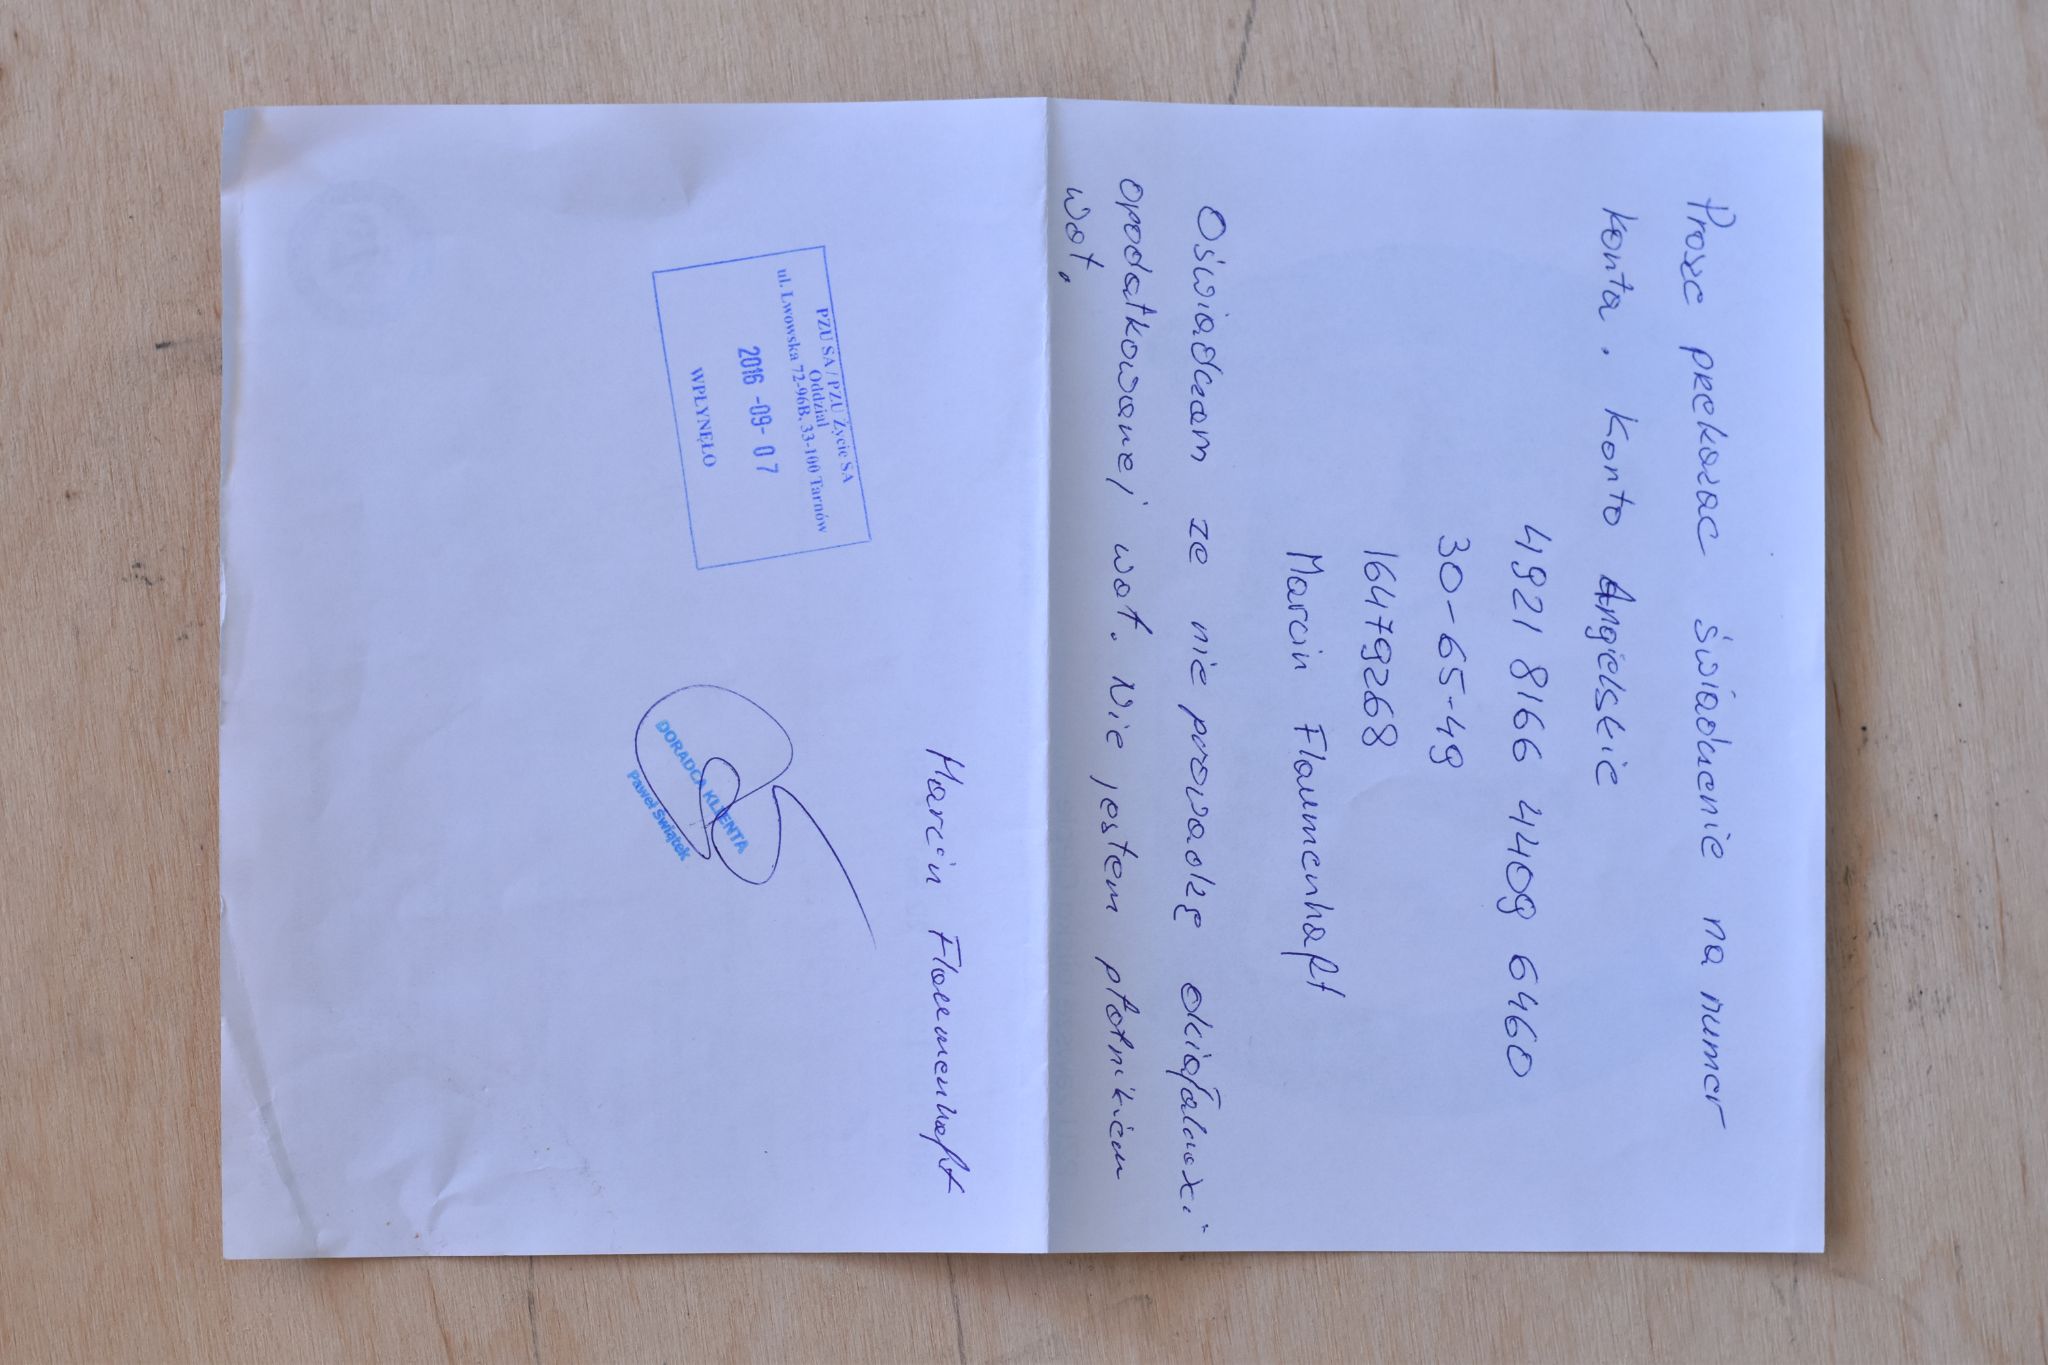 Proszę przekazac świadczenie na numer
konta. Konto Angielskie
4921 8166 4409 6460
30-65-49
16479268
Marcin Flaumenhaft
Oświadczam ze nie prowadzę działalnosci
opodatkowanej wat. Nie jestem płatnikiem
wat.
Marcin Flaumenhaft
PZU SA / PZU Życie SA
Oddział
ul. Lwowska 72-96B, 33-100 Tarnów
2016 -09- 07
WPŁYNĘŁO
DORADCA KLIENTA
Paweł Świątek